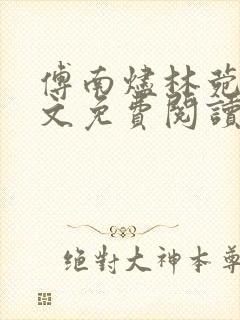 傅南燼林菀
文免費閱讀
絕對大神本尊